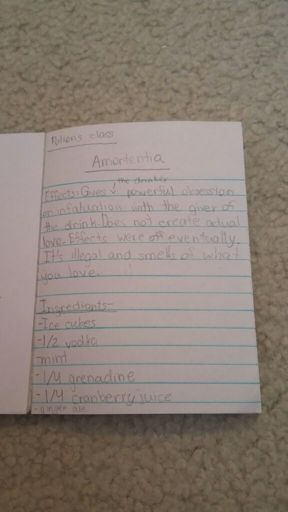 Potions class
Amortentia
the drinker
Effects: Gives powerful obsession
or infatuation with the giver of
the drink. Does not create actual
love. Effects were off eventually.
It's illegal and smells of what
you love.
Ingredients-
-Ice cubes
-1/2 vodka
-mint
-1/4 grenadine
-1/4 cranberry juice
-ginger ale